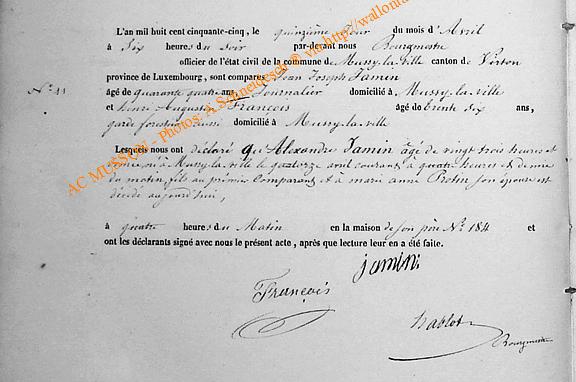 L'an mil huit cent cinquante-cinq, le quinzième jour du mois d'Avril
à Six heures du Soir par-devant nous Bourgmestre
officier de l'état civil de la commune de Mussy-la-Ville canton de Virton
province de Luxembourg, sont comparus Jean Joseph Jamin
N° 11 âgé de quarante quatre ans, Journalier domicilié à Mussy-la-ville
et Auguste Francois âgé de trente Six ans,
garde forestier aussi domicilié à Mussy-la-ville
Lesquels nous ont déclaré que Alexandre Jamin âgé de vingt trois heures et
demie, né à Mussy-la-ville le quatorze avril courant à quatre heures et demie
du matin, fils au premier Comparant et à marie anne Protin son épouse est
décédé aujourd'hui,
à quatre heures du Matin en la maison de son père N° 184 et
ont les déclarants signé avec nous le présent acte, après que lecture leur en a été faite.
jamin
François
hablot
Bourgmestre
AC MUSSON - Photos: A.Schneidesch @ via http://wallonia